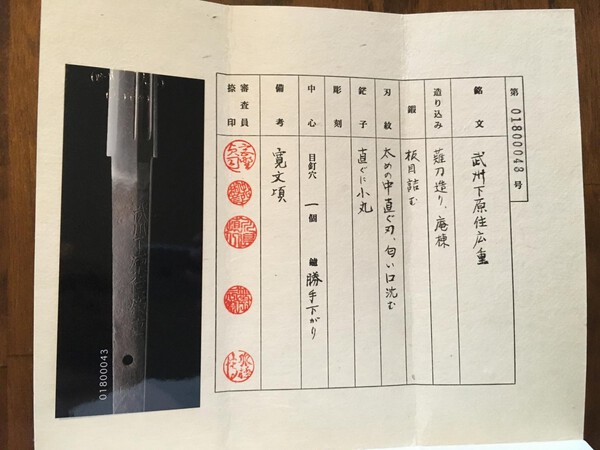 第 01800043 号
銘文 武州下原住広重
造り込み 薙刀造り、庵棟
鍛 板目詰む
刃紋 太めの中直ぐ刃、匂い口沈む
鋩子 直ぐに小丸
彫刻
中心 目釘穴 一個 鑢 勝手下がり
備考 寛文頃
審査員捺印
01800043